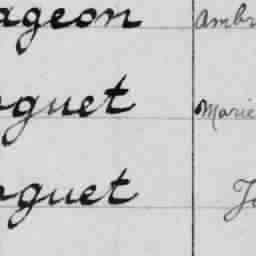 ageon Ambr
oguet Marie
oguet Jo